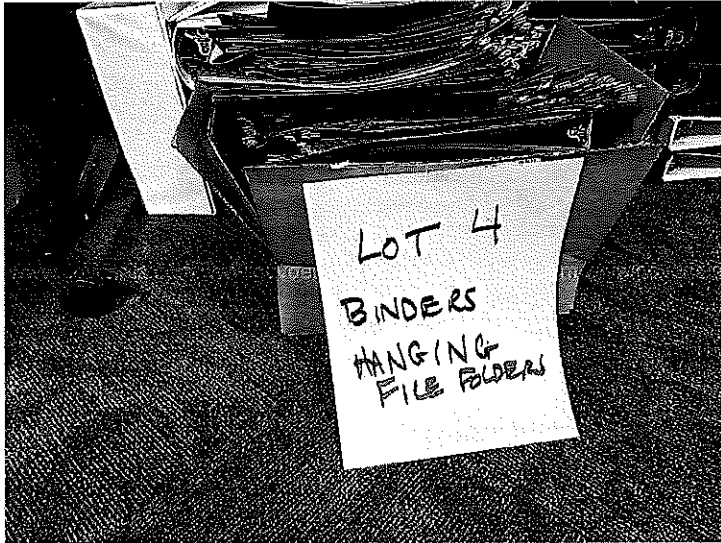 LOT 4
BINDERS
HANGING
FILE FOLDERS